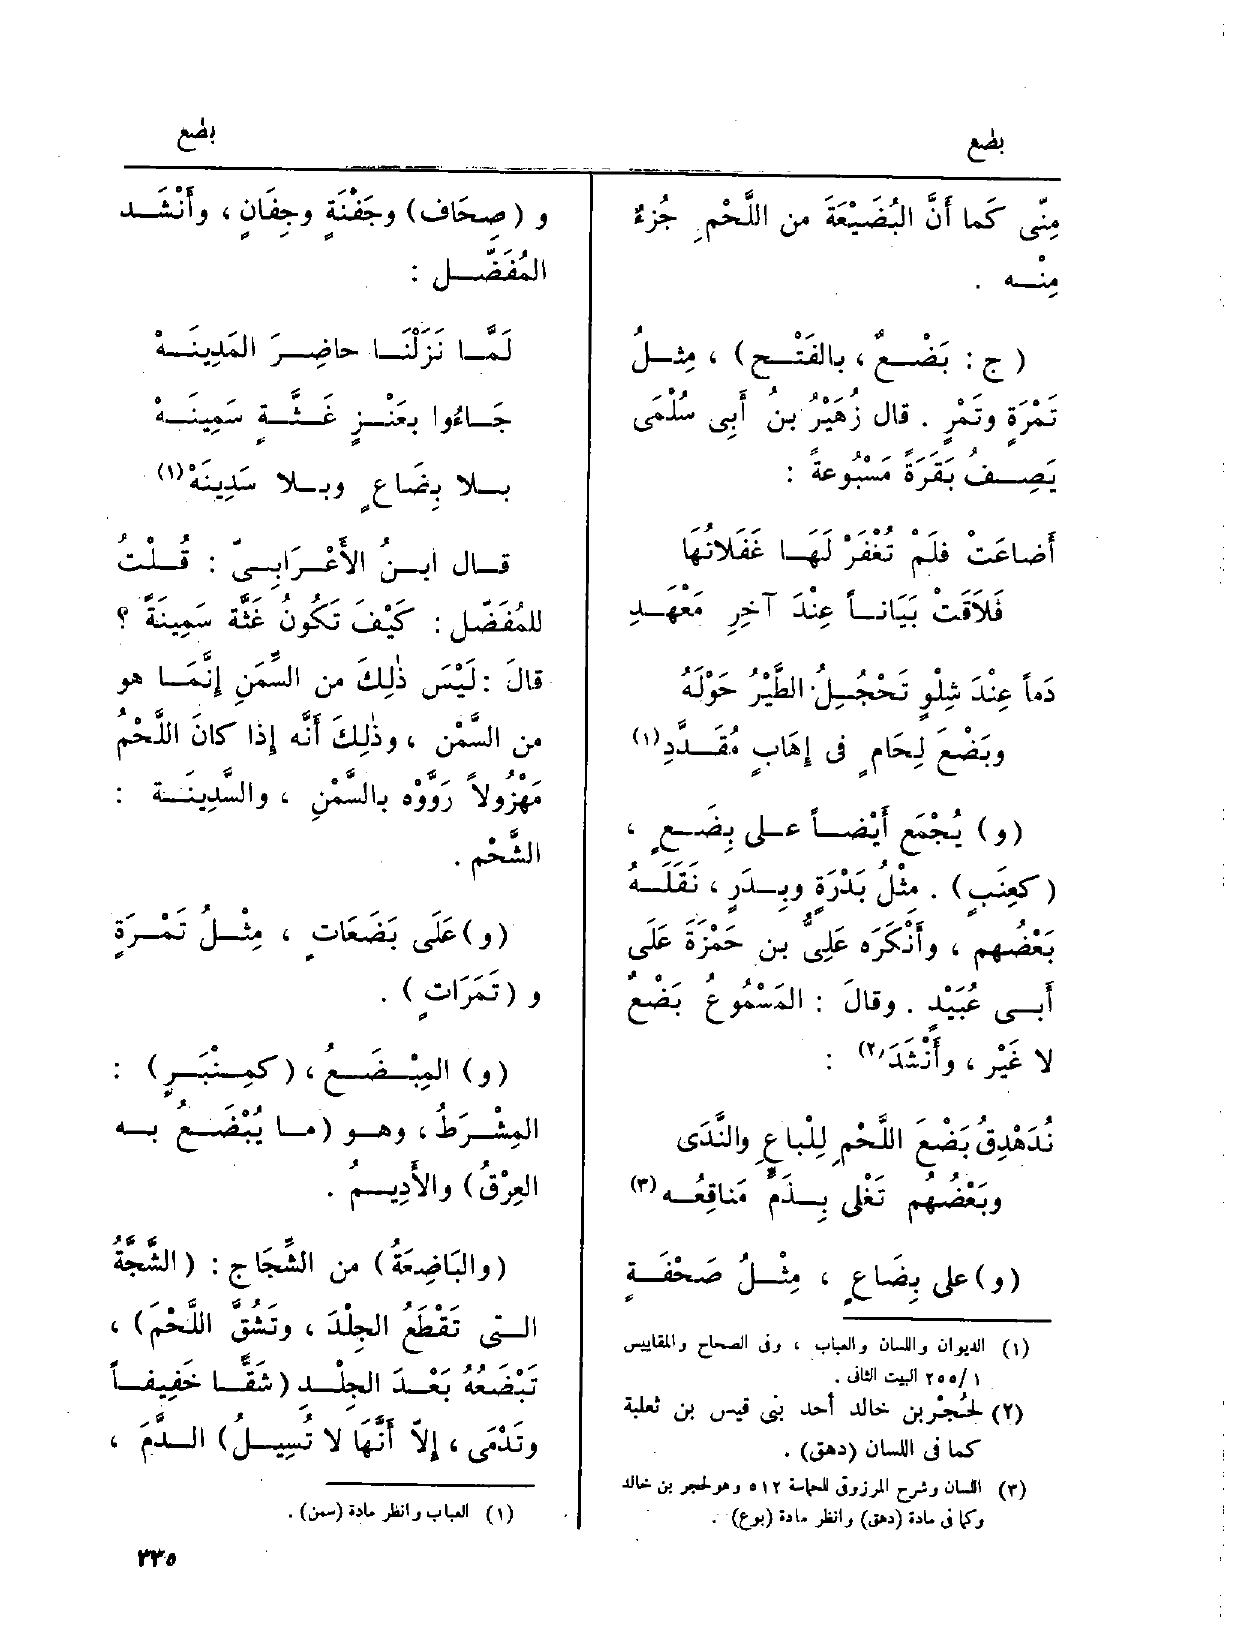 بضع
مِنّى كَما أَنَّ البُضَيْعَةَ من اللَّحْمِ جُزءٌ
مِنْـه .
( ج : بَضْـعٌ ، بالفَتْـح ) ، مِثـلُ
تَمْرَةٍ وتَمْرٍ . قال زُهَيْرُ بنُ أَبِى سُلْمَى
يَصِـفُ بَقَرَةً مَسْبُوعةً :
أَضاعَتْ فلَم تُغْفَرْ لَهَـا غَفَلاتُهَا
فَلَاقَتْ بَيَانـاً عِنْدَ آخِرِ مَعْهَـدِ
دَماً عِنْدَ شِلْوٍ تَحْجُـلُ الطَّيْرُ حَوْلَهُ
وبَضْعَ لِحَامٍ فى إِهَابٍ مُقَـدَّدِ(١)
(و) يُجْمَع أَيْضـاً علـى بِضَـعٍ ،
(كعِنَبٍ) . مِثْلُ بَدْرَةٍ وبِـدَرٍ ، نَقَلَـهُ
بَعْضُهم ، وأَنْكَرَه عَلِىُّ بن حَمْزَةَ عَلَى
أَبـى عُبَيْدٍ . وقالَ : المَسْمُوعُ بَضْعٌ
لا غَيْر ، وأَنْشَدَ(٢) :
نُدَهْدِقُ بَضْعَ اللَّحْمِ لِلْباعِ والنَّدَى
وبَعْضُهم تَغْلِى بِـذَمٍّ مَناقِعُـه(٣)
(و) على بِضَاعٍ ، مِثْـلُ صَحْفَـةٍ
(١) الديوان واللسان والعباب ، وفى الصحاح والمقاييس
١ /٢٥٥ البيت الثانى .
(٢) لحُجْر بن خالد أحد بنى قيس بن ثعلبة
كما فى اللسان (دهق) .
(٣) اللسان وشرح المرزوقى للحماسة ٥١٢ وهو لحجر بن خالد
وكما فى مادة (دهق) وانظر مادة (بوع) .
بضع
و ( صِحَاف) وجَفْنَةٍ وجِفَانٍ ، وأَنْشَـد
المُفَضَّـل :
لَمَّـا نَزَلْنَـا حاضِـرَ المَدِينَـهْ
جَـاءُوا بعَنْـزٍ غَـثَّـةٍ سَمِينَـهْ
بـلا بِضَاعٍ وبـلا سَدِينَهْ(١)
قـال ابـنُ الأَعْـرَابِـىّ : قُـلْتُ
للمُفَضَّل : كَيْفَ تَكُونُ غَثَّة سَمِينَةً ؟
قالَ : لَيْسَ ذٰلِكَ من السِّمَنِ إِنَّمَـا هو
من السَّمْن ، وذٰلِكَ أَنَّه إِذا كانَ اللَّحْمُ
مَهْزُولاً رَوَّوْه بالسَّمْنِ ، والسَّدِينَـة :
الشَّحْم .
(و)عَلَى بَضَعَاتٍ ، مِثْـلُ تَمْـرَةٍ
و ( تَمَرَاتٍ ) .
(و) المِبْـضَـعُ ، (كمِـنْبَـرٍ ) :
المِشْـرَطُ ، وهـو (مـا يُبْضَـعُ بـه
العِرْقُ) والأَدِيـمُ .
(والبَاضِعَةُ) من الشِّجَاج : (الشَّجَّةُ
الـتى تَقْطَع الجِلْدَ ، وتَشُقُّ اللَّحْمَ) ،
تَبْضَعُهُ بَعْـدَ الجِلْـدِ (شَقًّـا خَفِيفـاً
وتَدْمَى ، إِلاّ أَنَّهَا لا تُسِيـلُ) الـدَّمَ ،
(١) العباب وانظر مادة (سمن) .
٣٣٥